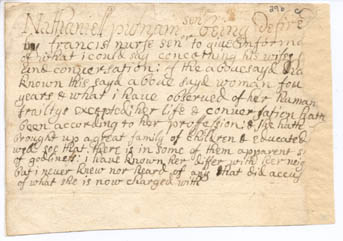 Nathaniell putnam senr being desire
by francis nurse senr to giue informa
of what i could say concerning his wifes
and conversation: i the abouesayd ha
known this sayd aboue sayd woman fou
years & what i haue observed of her human
frailtys excepted: her life & conversation hath
been according to her profession: & she hath
brought up a great family of children & educated
well soe that there is in some of them apparent s
of godlines: i haue known her differ with her neig
but i never knew nor heard of any that did accus
of what she is now charged with